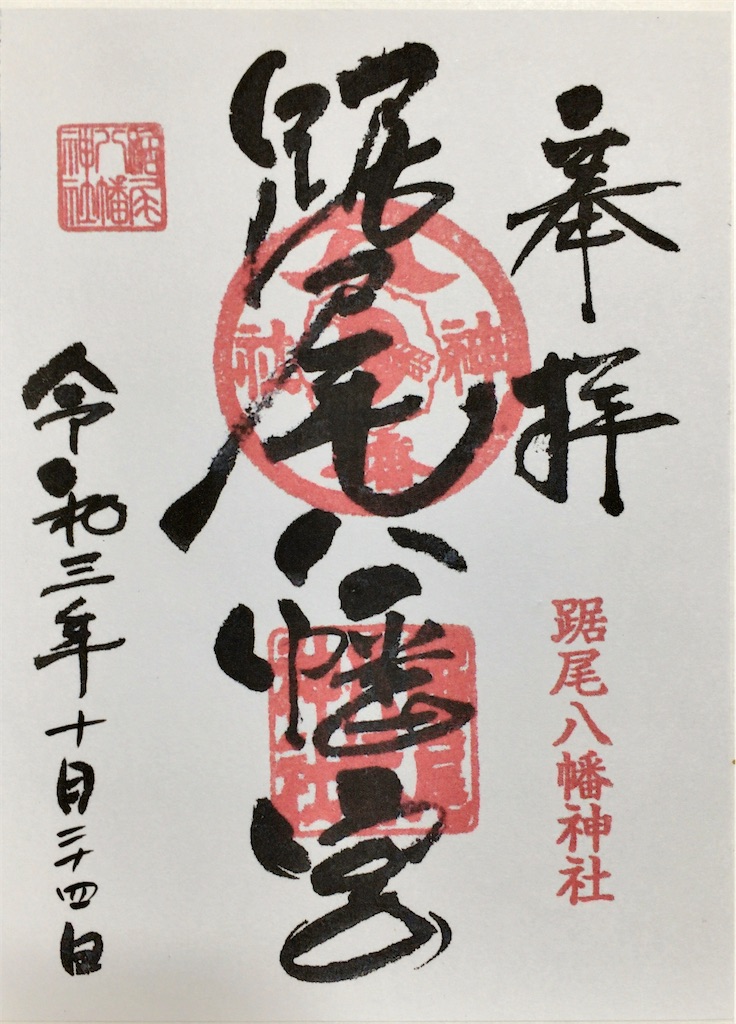 奉拝
踞尾八幡神社
踞尾八幡宮
八幡神社
踞尾八幡神社
踞尾八幡神社
令和三年十月二十四日